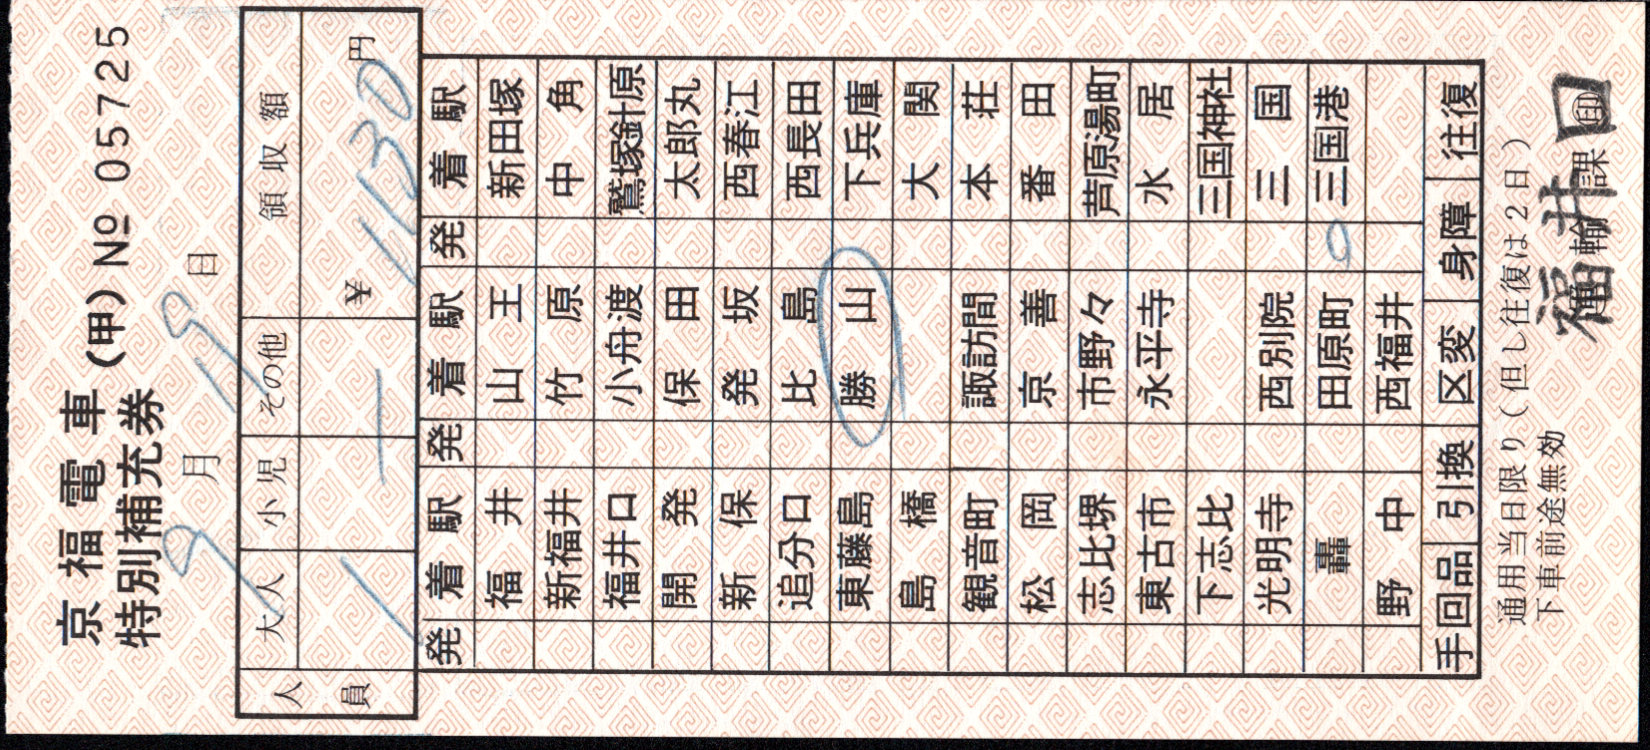 京福電車(甲)№ 05725
特別補充券
9月19日
人員 大人 小児 その他 領収額
1 一 ¥1130円
発 着駅 発 着駅 発 着駅
福井 山王 新田塚
新福井 竹原 中角
福井口 小舟渡 鷲塚針原
開発 保田 太郎丸
新保 発坂 西春江
追分口 比島 西長田
東藤島 勝山 下兵庫
島橋 大関
観音町 諏訪間 本荘
松岡 京善 番田
志比堺 市野々 芦原湯町
東古市 永平寺 水居
下志比 三国神社
光明寺 西別院 三国
轟 田原町 三国港
野中 西福井
手回品 引換 区変 身障 往復
通用当日限り(但し往復は2日)
下車前途無効
福井 回
輸課 ㊞